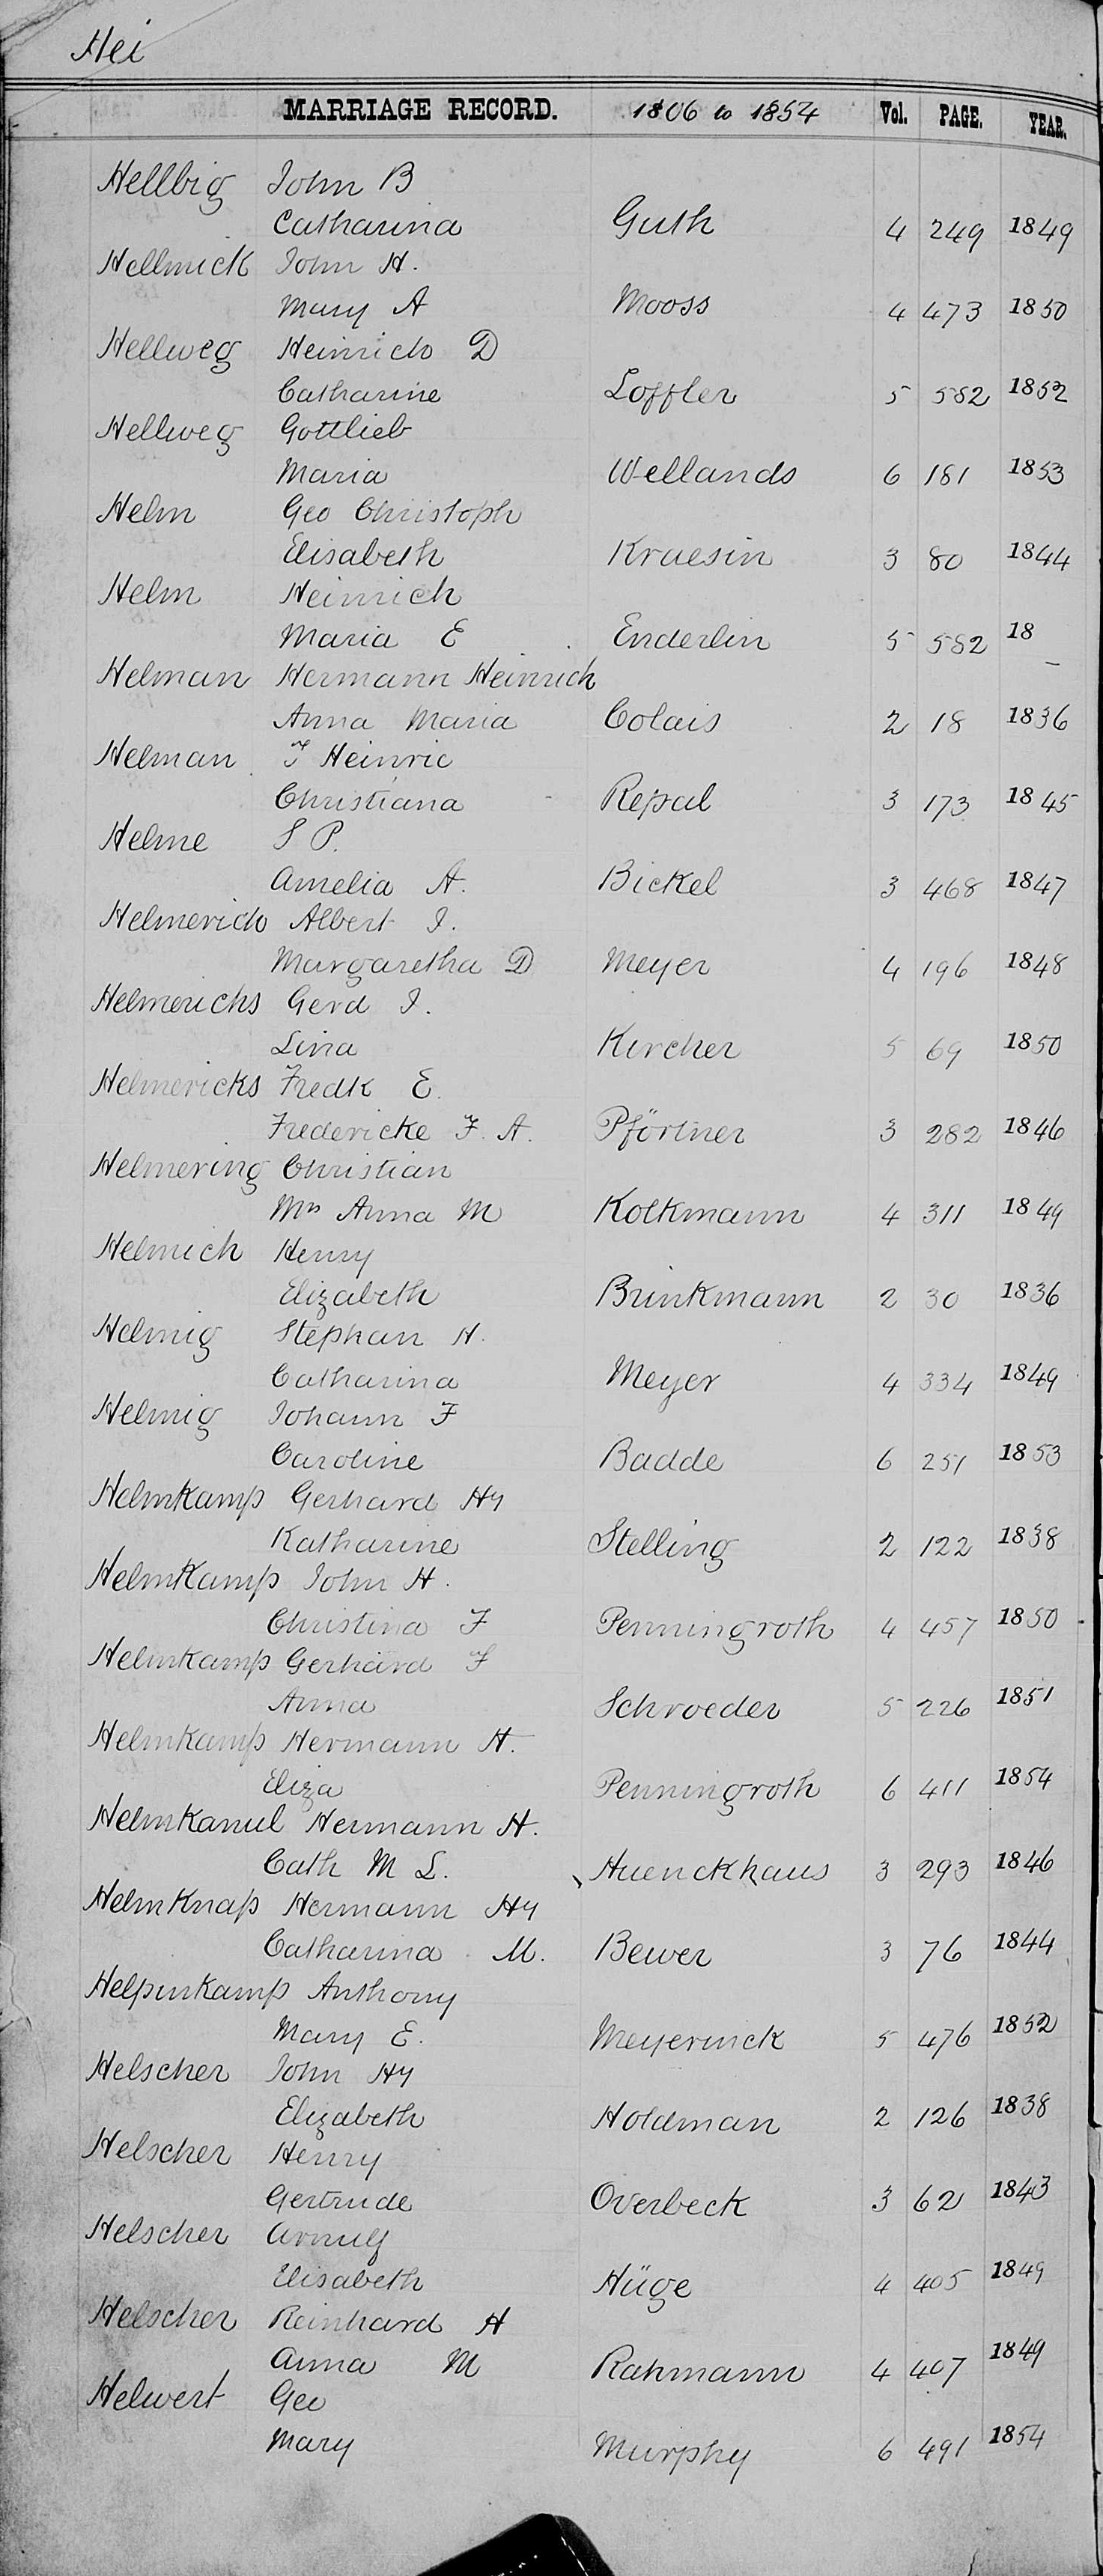 Hei
MARRIAGE RECORD. 1806 to 1854 Vol. PAGE. YEAR.
Hellbig John B
Catharina Guth 4 249 1849
Hellmick John H.
Mary A Mooss 4 473 1850
Hellweg Heinrich D
Catharine Loffler 5 582 1852
Hellweg Gottlieb
Maria Wellands 6 181 1853
Helm Geo Christoph
Elisabeth Kraesin 3 80 1844
Helm Heinrich
Maria E Enderlin 5 582 18
Helman Hermann Heinrich
Anna Maria Colais 2 18 1836
Helman F Heinric
Christiana Repal 3 173 1845
Helme S P.
Amelia A. Bickel 3 468 1847
Helmerich Albert I.
Margaretha D Meyer 4 196 1848
Helmerichs Gerd I.
Lina Kercher 5 69 1850
Helmericks Fredk E.
Fredericke F. A. Pförtner 3 282 1846
Helmering Christian
Mrs Anna M Kolkmann 4 311 1849
Helmich Henry
Elizabeth Brinkmann 2 30 1836
Helmig Stephan H.
Catharina Meyer 4 334 1849
Helmig Johann F
Caroline Badde 6 251 1853
Helmkamp Gerhard Hy
Katharine Stelling 2 122 1838
Helmkamp John H.
Christina F Penningroth 4 457 1850
Helmkamp Gerhard F
Anna Schroeder 5 226 1851
Helmkamp Hermann H.
Eliza Penningroth 6 411 1854
Helmkanul Hermann H.
Cath M L. Huenckhaus 3 293 1846
Helmknap Hermann Hy
Catharina M. Bewer 3 76 1844
Helpinkamp Anthony
Mary E. Meyerinck 5 476 1852
Helscher John Hy
Elizabeth Holdman 2 126 1838
Helscher Henry
Gertrude Overbeck 3 62 1843
Helscher Arnulf
Elisabeth Hüge 4 405 1849
Helscher Reinhard H
Anna M Rahmann 4 407 1849
Helwert Geo
Mary Murphy 6 491 1854